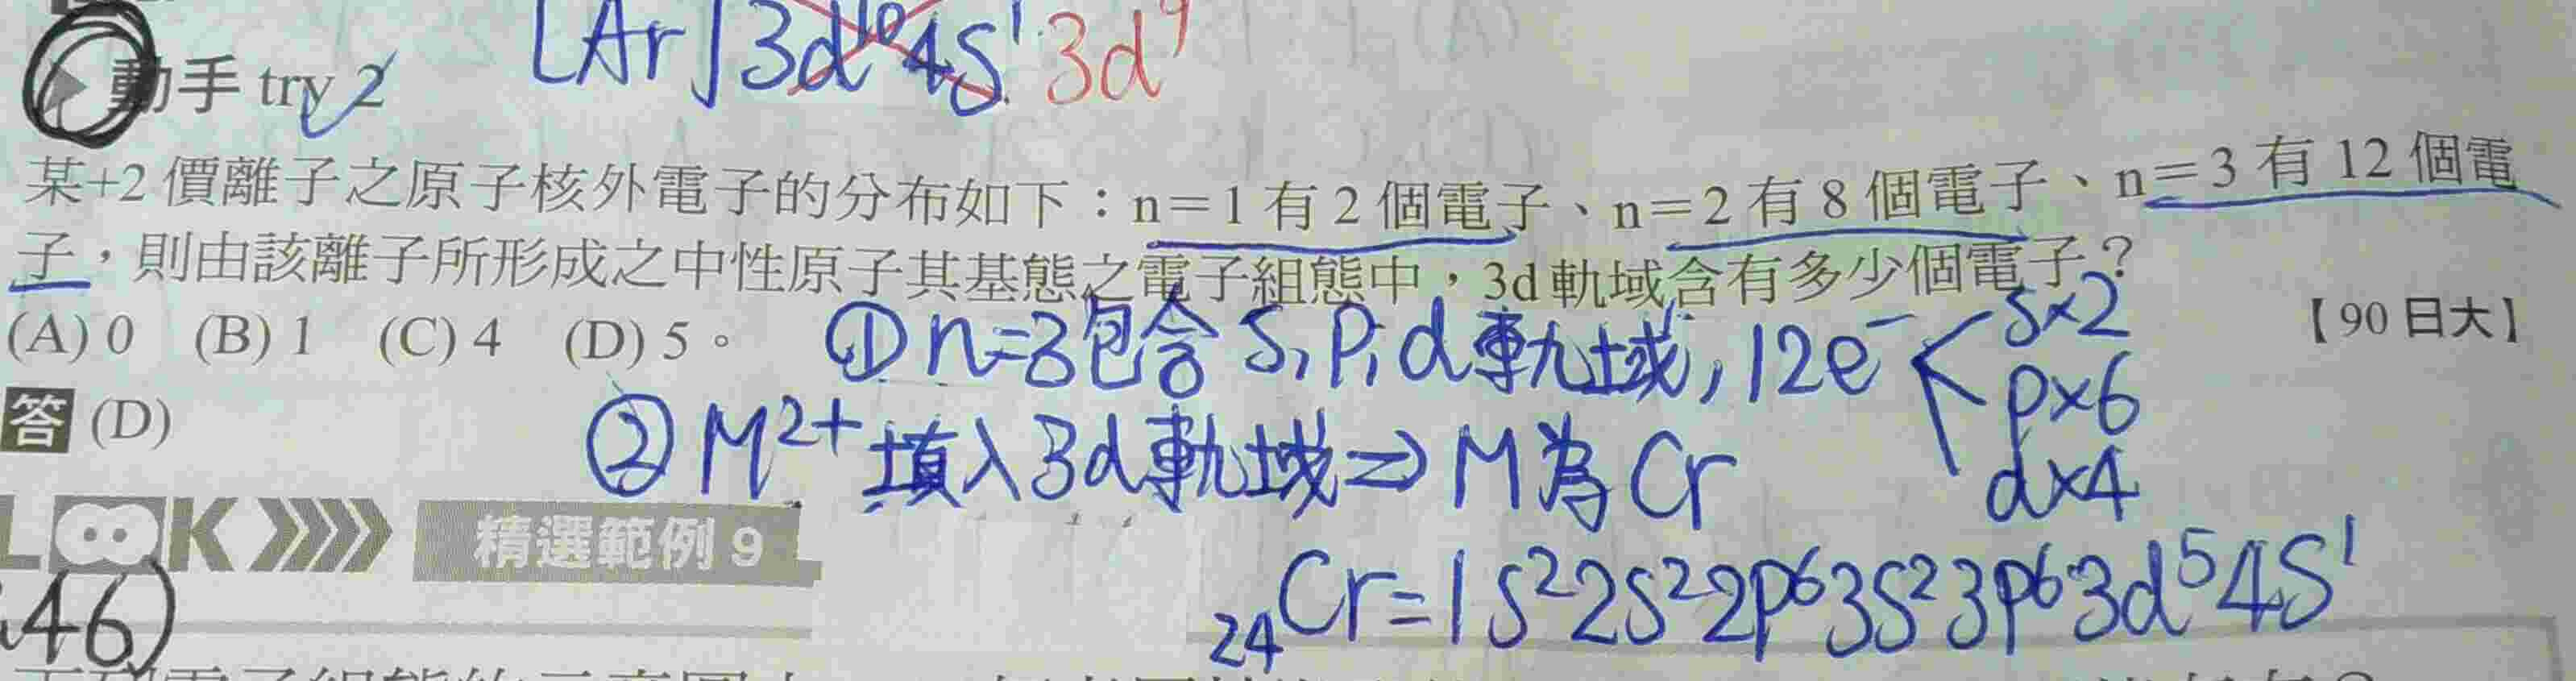 [Ar]3d¹⁰4S¹ 3d⁹
動手 try 2
某+2 價離子之原子核外電子的分布如下：n＝1 有 2 個電子、n＝2 有 8 個電子、n＝3 有 12 個電
子，則由該離子所形成之中性原子其基態之電子組態中，3d 軌域含有多少個電子？
(A) 0 (B) 1 (C) 4 (D) 5。
【90 日大】
① n=3包含 S, P, d軌域, 12e⁻ S×2
P×6
d×4
答 (D)
② M²⁺填入3d軌域⇒M為Cr
LOOK 精選範例 9
₂₄Cr=1S²2S²2P⁶3S²3P⁶3d⁵4S¹
46)